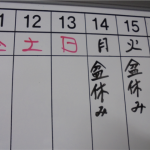 11 12 13 14 15
土 日 月 火
盆休み 盆休み